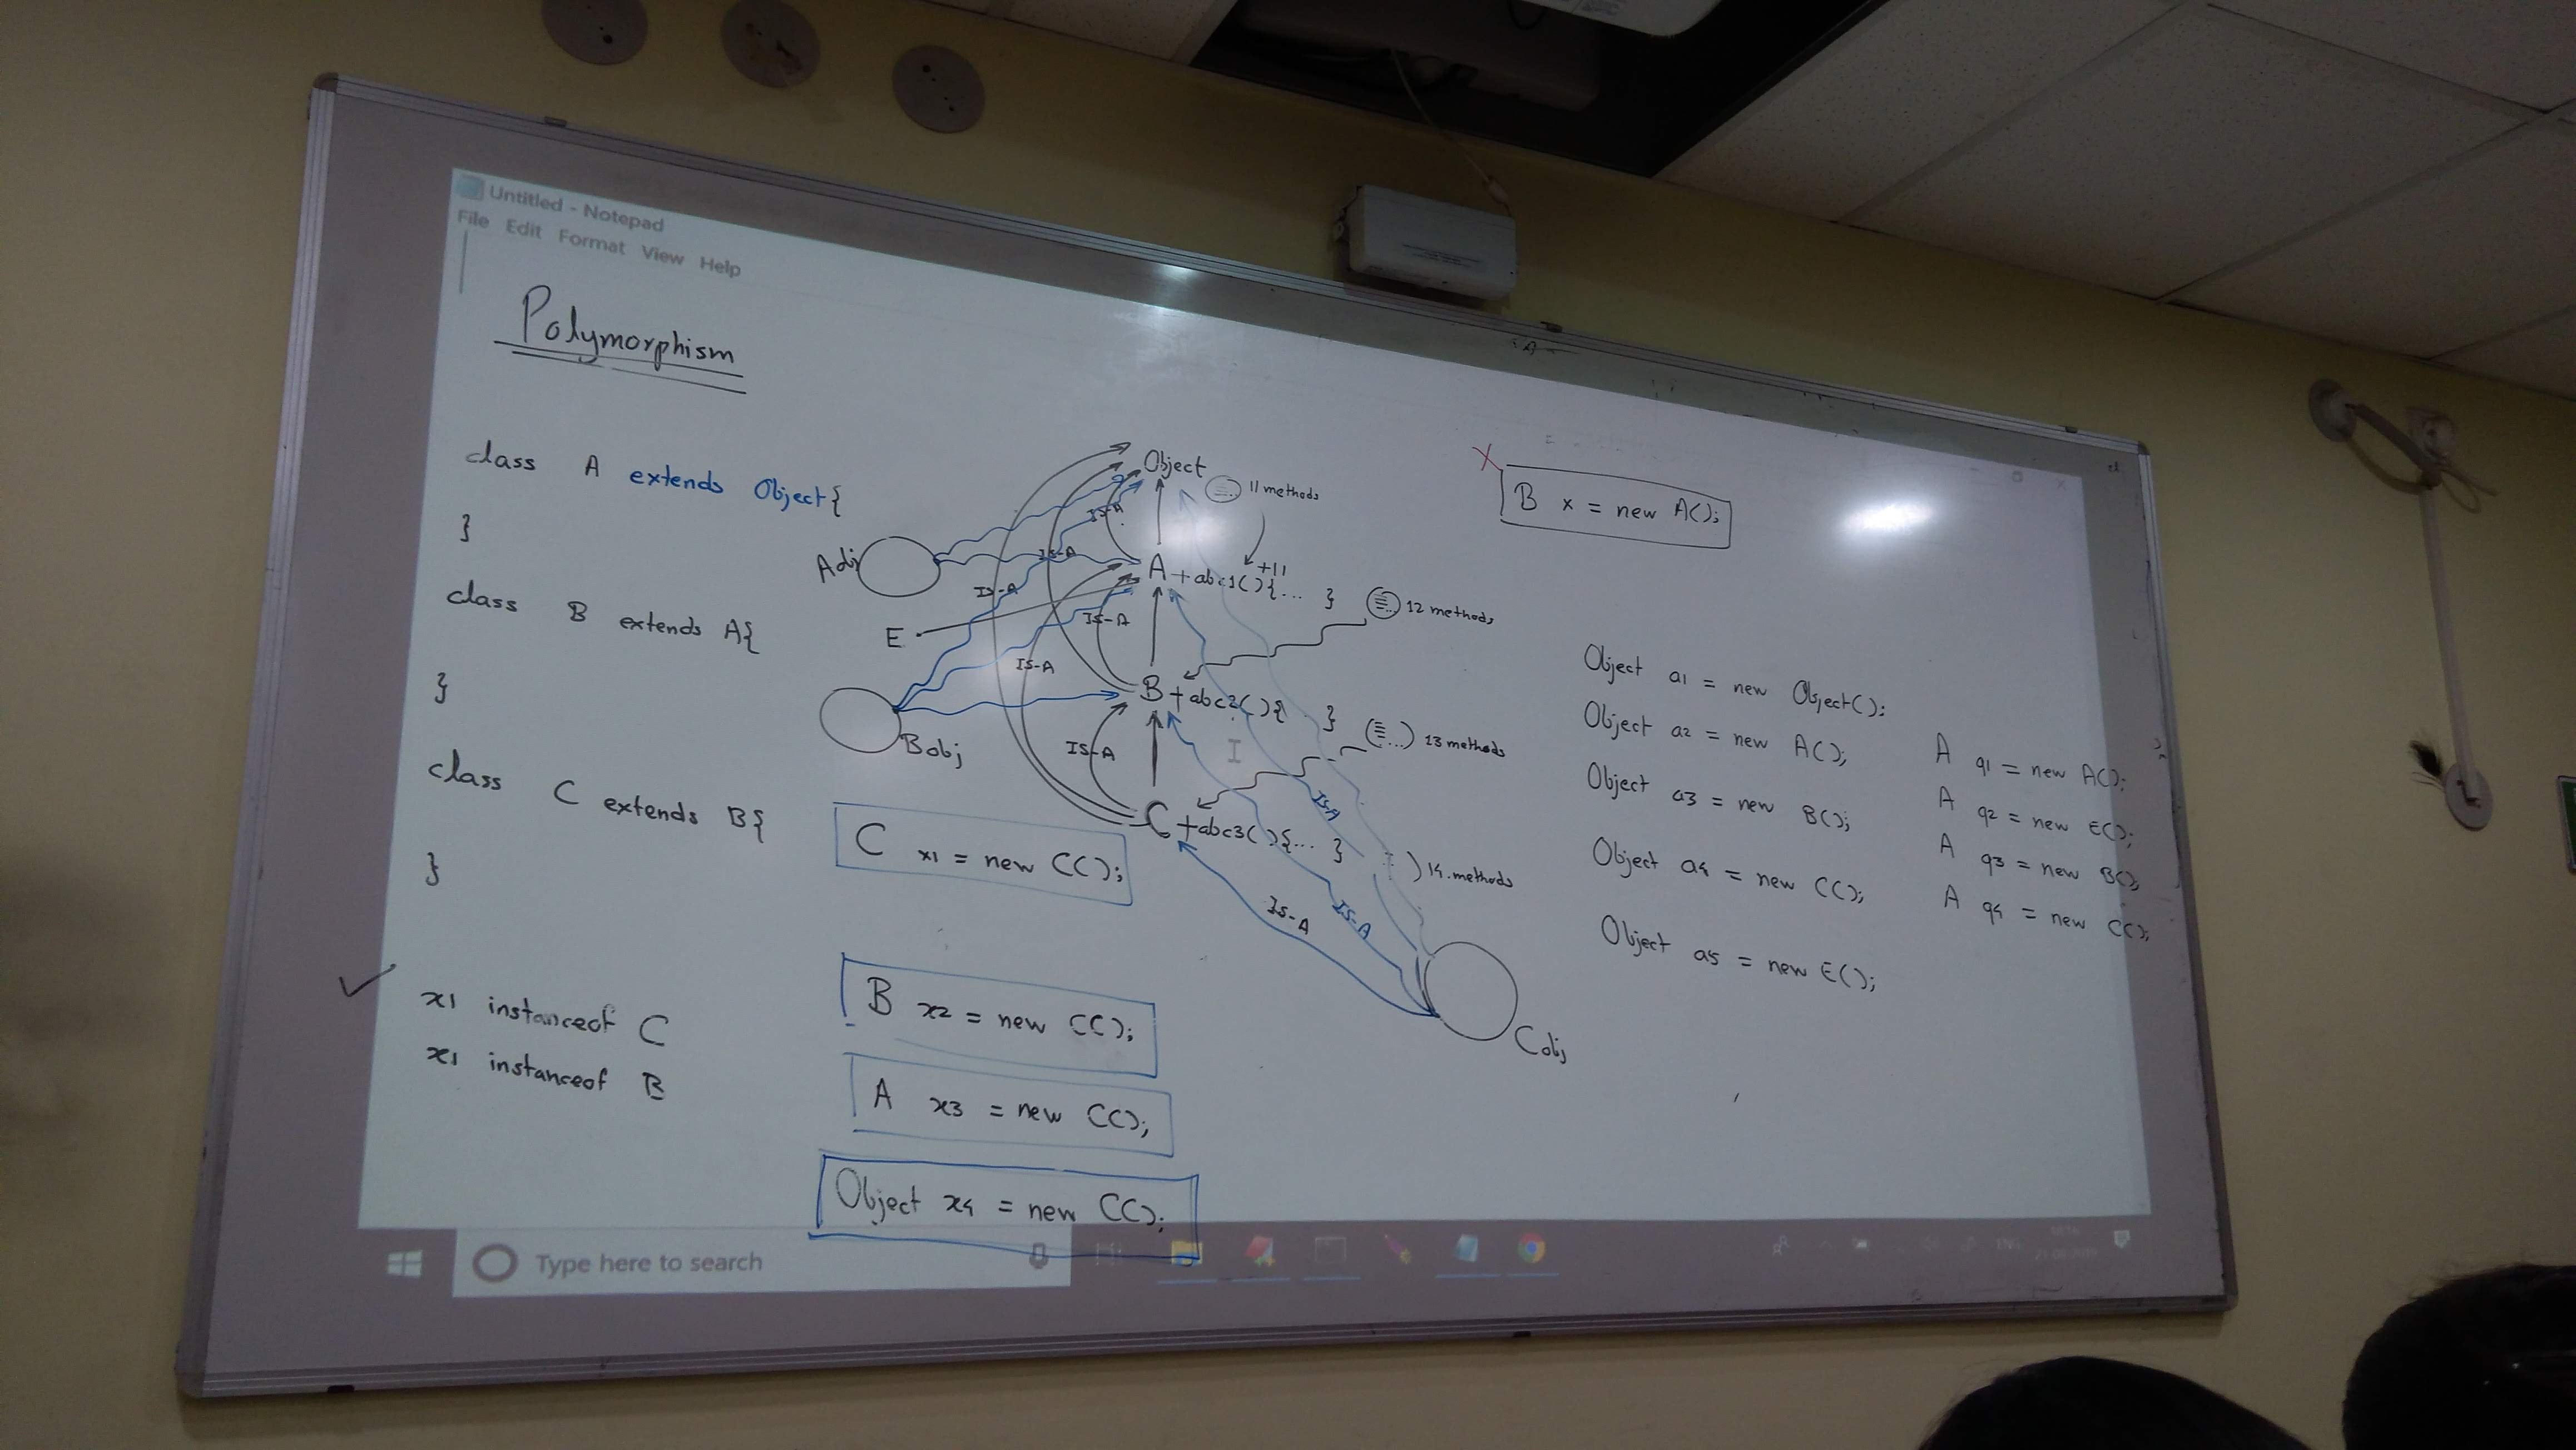 Untitled - Notepad
File Edit Format View Help
Polymorphism
class A extends Object{
}
class B extends A{
}
class C extends B{
}
x1 instanceof C
x1 instanceof B
Object
11 methods
IS-A
IS-A
IS-A
+11
A + abc1(){... }
12 methods
Aobj
E
IS-A
IS-A
B + abc2(){ }
13 methods
Bobj
IS-A
C + abc3(){... }
14 methods
IS-A
IS-A
IS-A
Cobj
C x1 = new C();
B x2 = new C();
A x3 = new C();
Object x4 = new C();
X
B x = new A();
Object a1 = new Object();
Object a2 = new A();
Object a3 = new B();
Object a4 = new C();
Object a5 = new E();
A q1 = new A();
A q2 = new E();
A q3 = new B();
A q4 = new C();
Type here to search
ENG